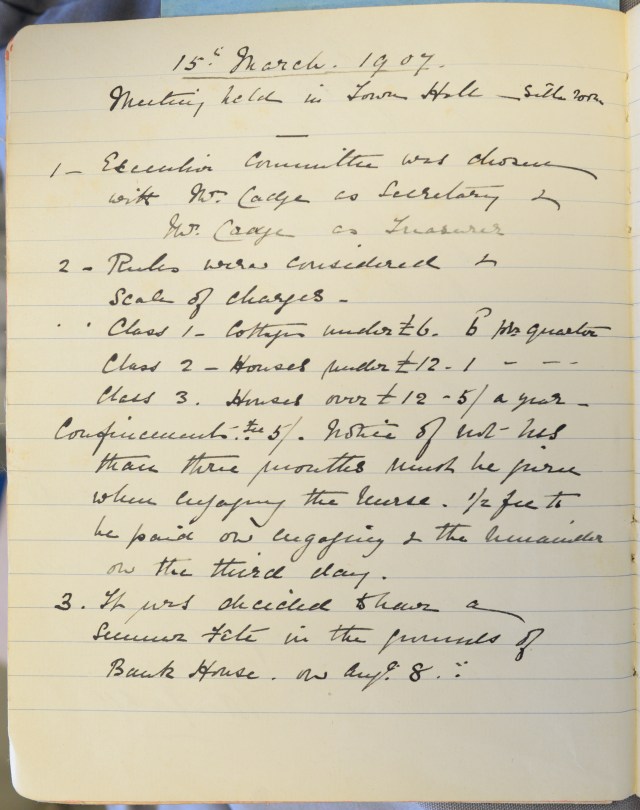 15th March. 1907.
Meeting held in Town Hall — room
1 — Executive Committee was chosen
with Mr. Cadge as Secretary &
Mr. Cadge as Treasurer
2 - Rules were considered &
Scale of charges -
Class 1 - Cottages under £6. per quarter
Class 2 - Houses under £12 - 1 - - -
Class 3. Houses over £12 - 5/ a year -
Confinements. fee 5/. Notice of not less
than three months must be given
when engaging the Nurse. 1/2 fee to
be paid on engaging & the remainder
on the third day.
3. It was decided to have a
Summer Fete in the grounds of
Bank House. on Augt. 8th